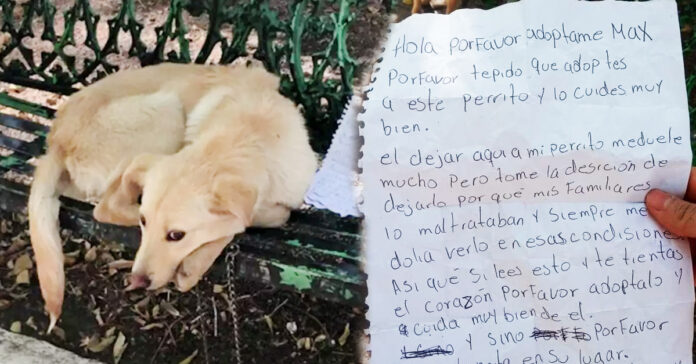 Hola PorFavor adoptame MAX
PorFavor tepido que adoptes
a este perrito y lo cuides muy
bien.
el dejar aqui a mi perrito meduele
mucho pero tome la desicion de
dejarlo por qué mis Familiares
lo maltrataban y siempre me
dolia verlo en esas condiciones
Asi qué si lees esto y te tientas
el corazón PorFavor adoptalo y
cuida muy bien de el.
y sino PorFavor
en su lugar.